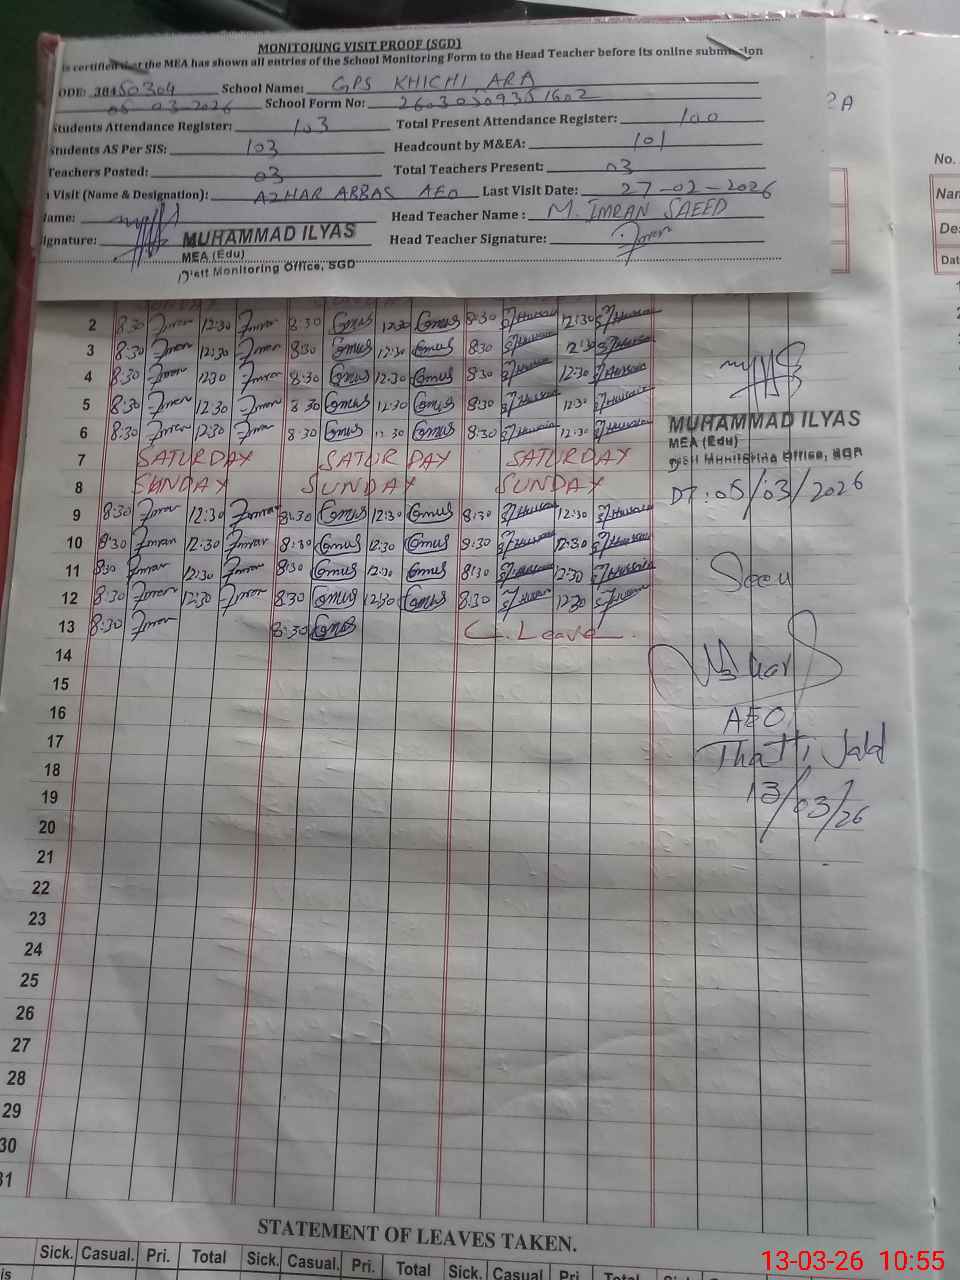 MONITORING VISIT PROOF (SGD)
is certified that the MEA has shown all entries of the School Monitoring Form to the Head Teacher before its online submission
ODE: 38450304 School Name: GPS KHICHI, ARA
05-03-2026 School Form No: 2603050935 1602
Students Attendance Register: 103 Total Present Attendance Register: 100
Students AS Per SIS: 103 Headcount by M&EA: 101
Teachers Posted: 03 Total Teachers Present: 03
Visit (Name & Designation): AZHAR ABBAS AEO Last Visit Date: 27-02-2026
Name: Head Teacher Name: M. IMRAN SAEED
Signature: MUHAMMAD ILYAS Head Teacher Signature: Imran
MEA (Edu)
Distt Monitoring Office, SGD
2A
No.
Nam
Des
Dat
2 8:30 Imran 12:30 Imran 8:30 12:30 8:30 12:30
3 8:30 Imran 12:30 Imran 8:30 12:30 8:30 12:30
4 8:30 Imran 12:30 Imran 8:30 12:30 8:30 12:30
5 8:30 Imran 12:30 Imran 8:30 12:30 8:30 12:30
6 8:30 Imran 12:30 Imran 8:30 12:30 8:30 12:30
7 SATURDAY SATURDAY SATURDAY
8 SUNDAY SUNDAY SUNDAY
9 8:30 Imran 12:30 Imran 8:30 12:30 8:30 12:30
10 8:30 Imran 12:30 Imran 8:30 12:30 8:30 12:30
11 8:30 Imran 12:30 Imran 8:30 12:30 8:30 12:30
12 8:30 Imran 12:30 Imran 8:30 12:30 8:30 12:30
13 8:30 Imran 8:30 C. Leave
14
15
16
17
18
19
20
21
22
23
24
25
26
27
28
29
30
31
MUHAMMAD ILYAS
MEA (Edu)
Distt Monitoring Office, SGD
DT: 05/03/2026
Seen
Azhar
AEO
Thatti Jalal
13/03/26
STATEMENT OF LEAVES TAKEN.
Sick. Casual. Pri. Total Sick. Casual. Pri. Total Sick. Casual. Pri. Total
13-03-26 10:55